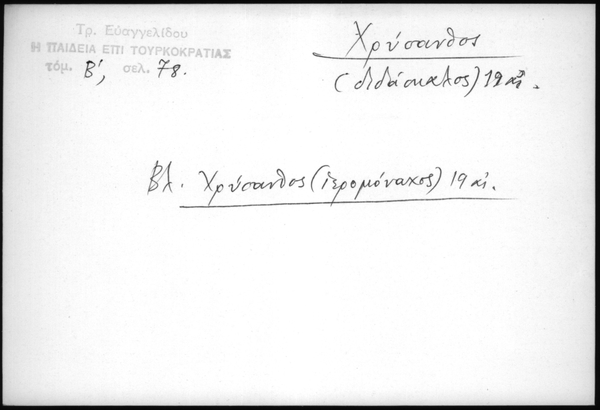 Τρ. Εὐαγγελίδου
Η ΠΑΙΔΕΙΑ ΕΠΙ ΤΟΥΡΚΟΚΡΑΤΙΑΣ
τόμ. Β', σελ. 78.
Χρύσανθος
(διδάσκαλος) 19 αἰ.
Βλ. Χρύσανθος (ἱερομόναχος) 19 αἰ.